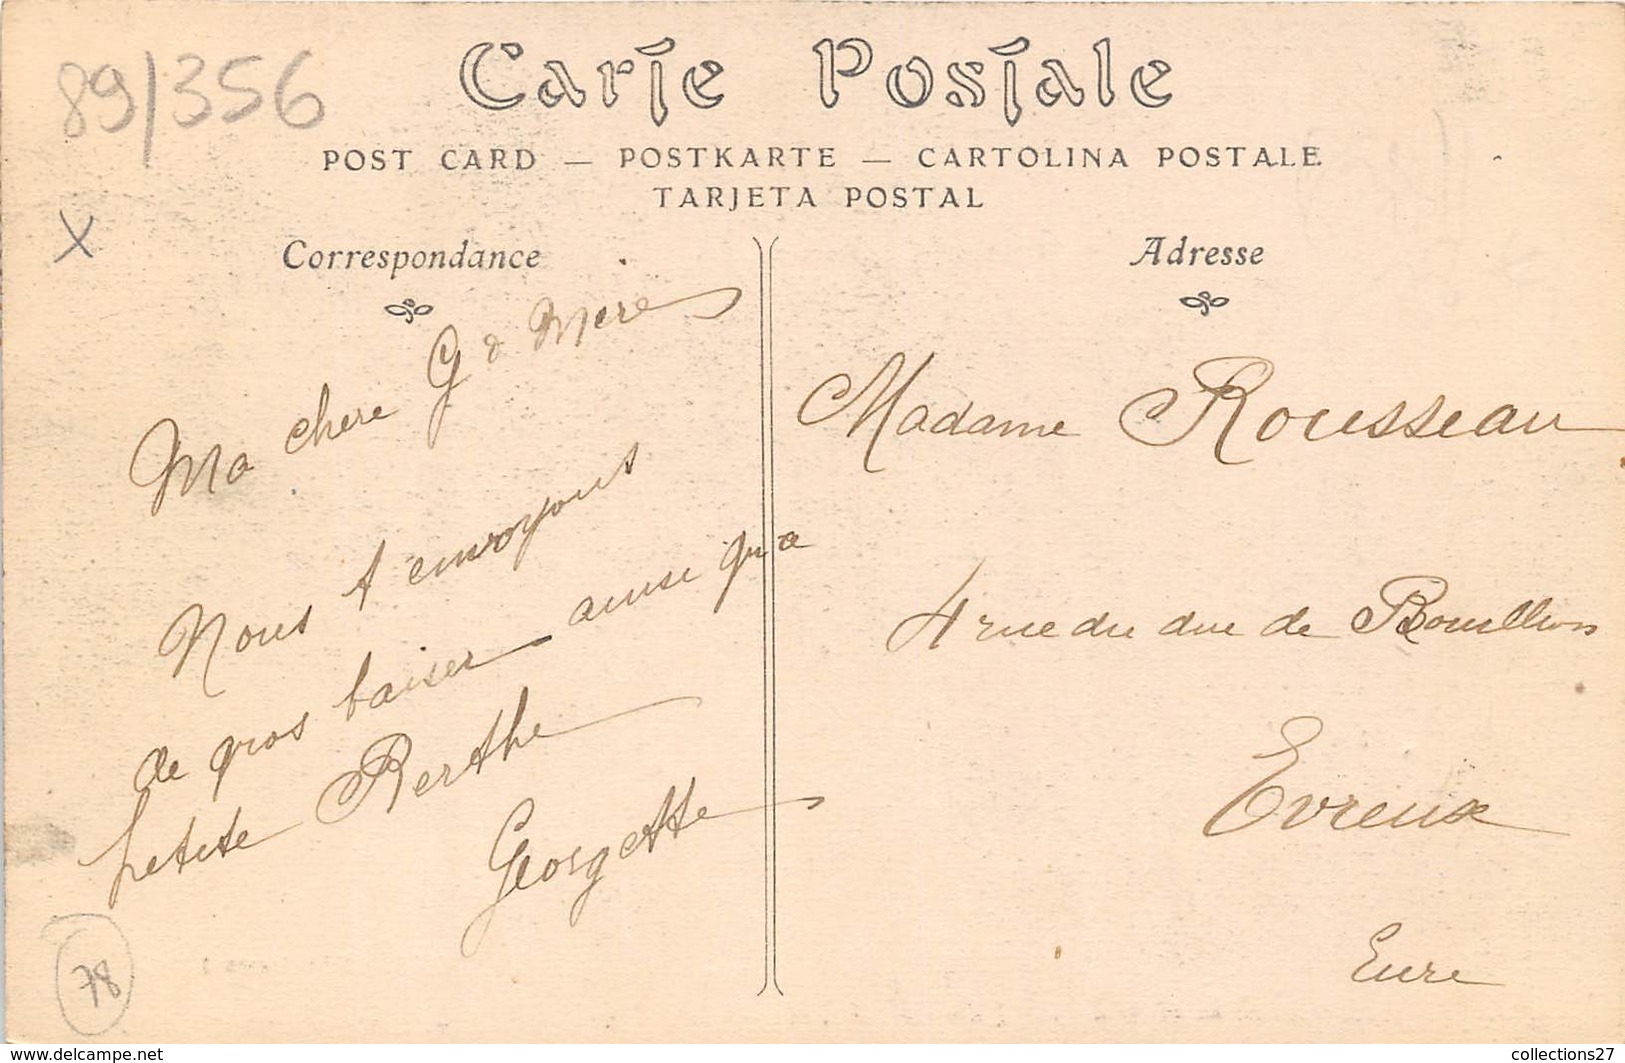 89/356
Carte Postale
POST CARD — POSTKARTE — CARTOLINA POSTALE
TARJETA POSTAL
X
Correspondance
Ma chere Gd Mere
Nous t envoyons
de gros baiser ainsi qu'a
petite Berthe
Georgette
78
Adresse
Madame Rousseau
4 rue du duc de Bouillon
Evreux
Eure
www.delcampe.net
collections27